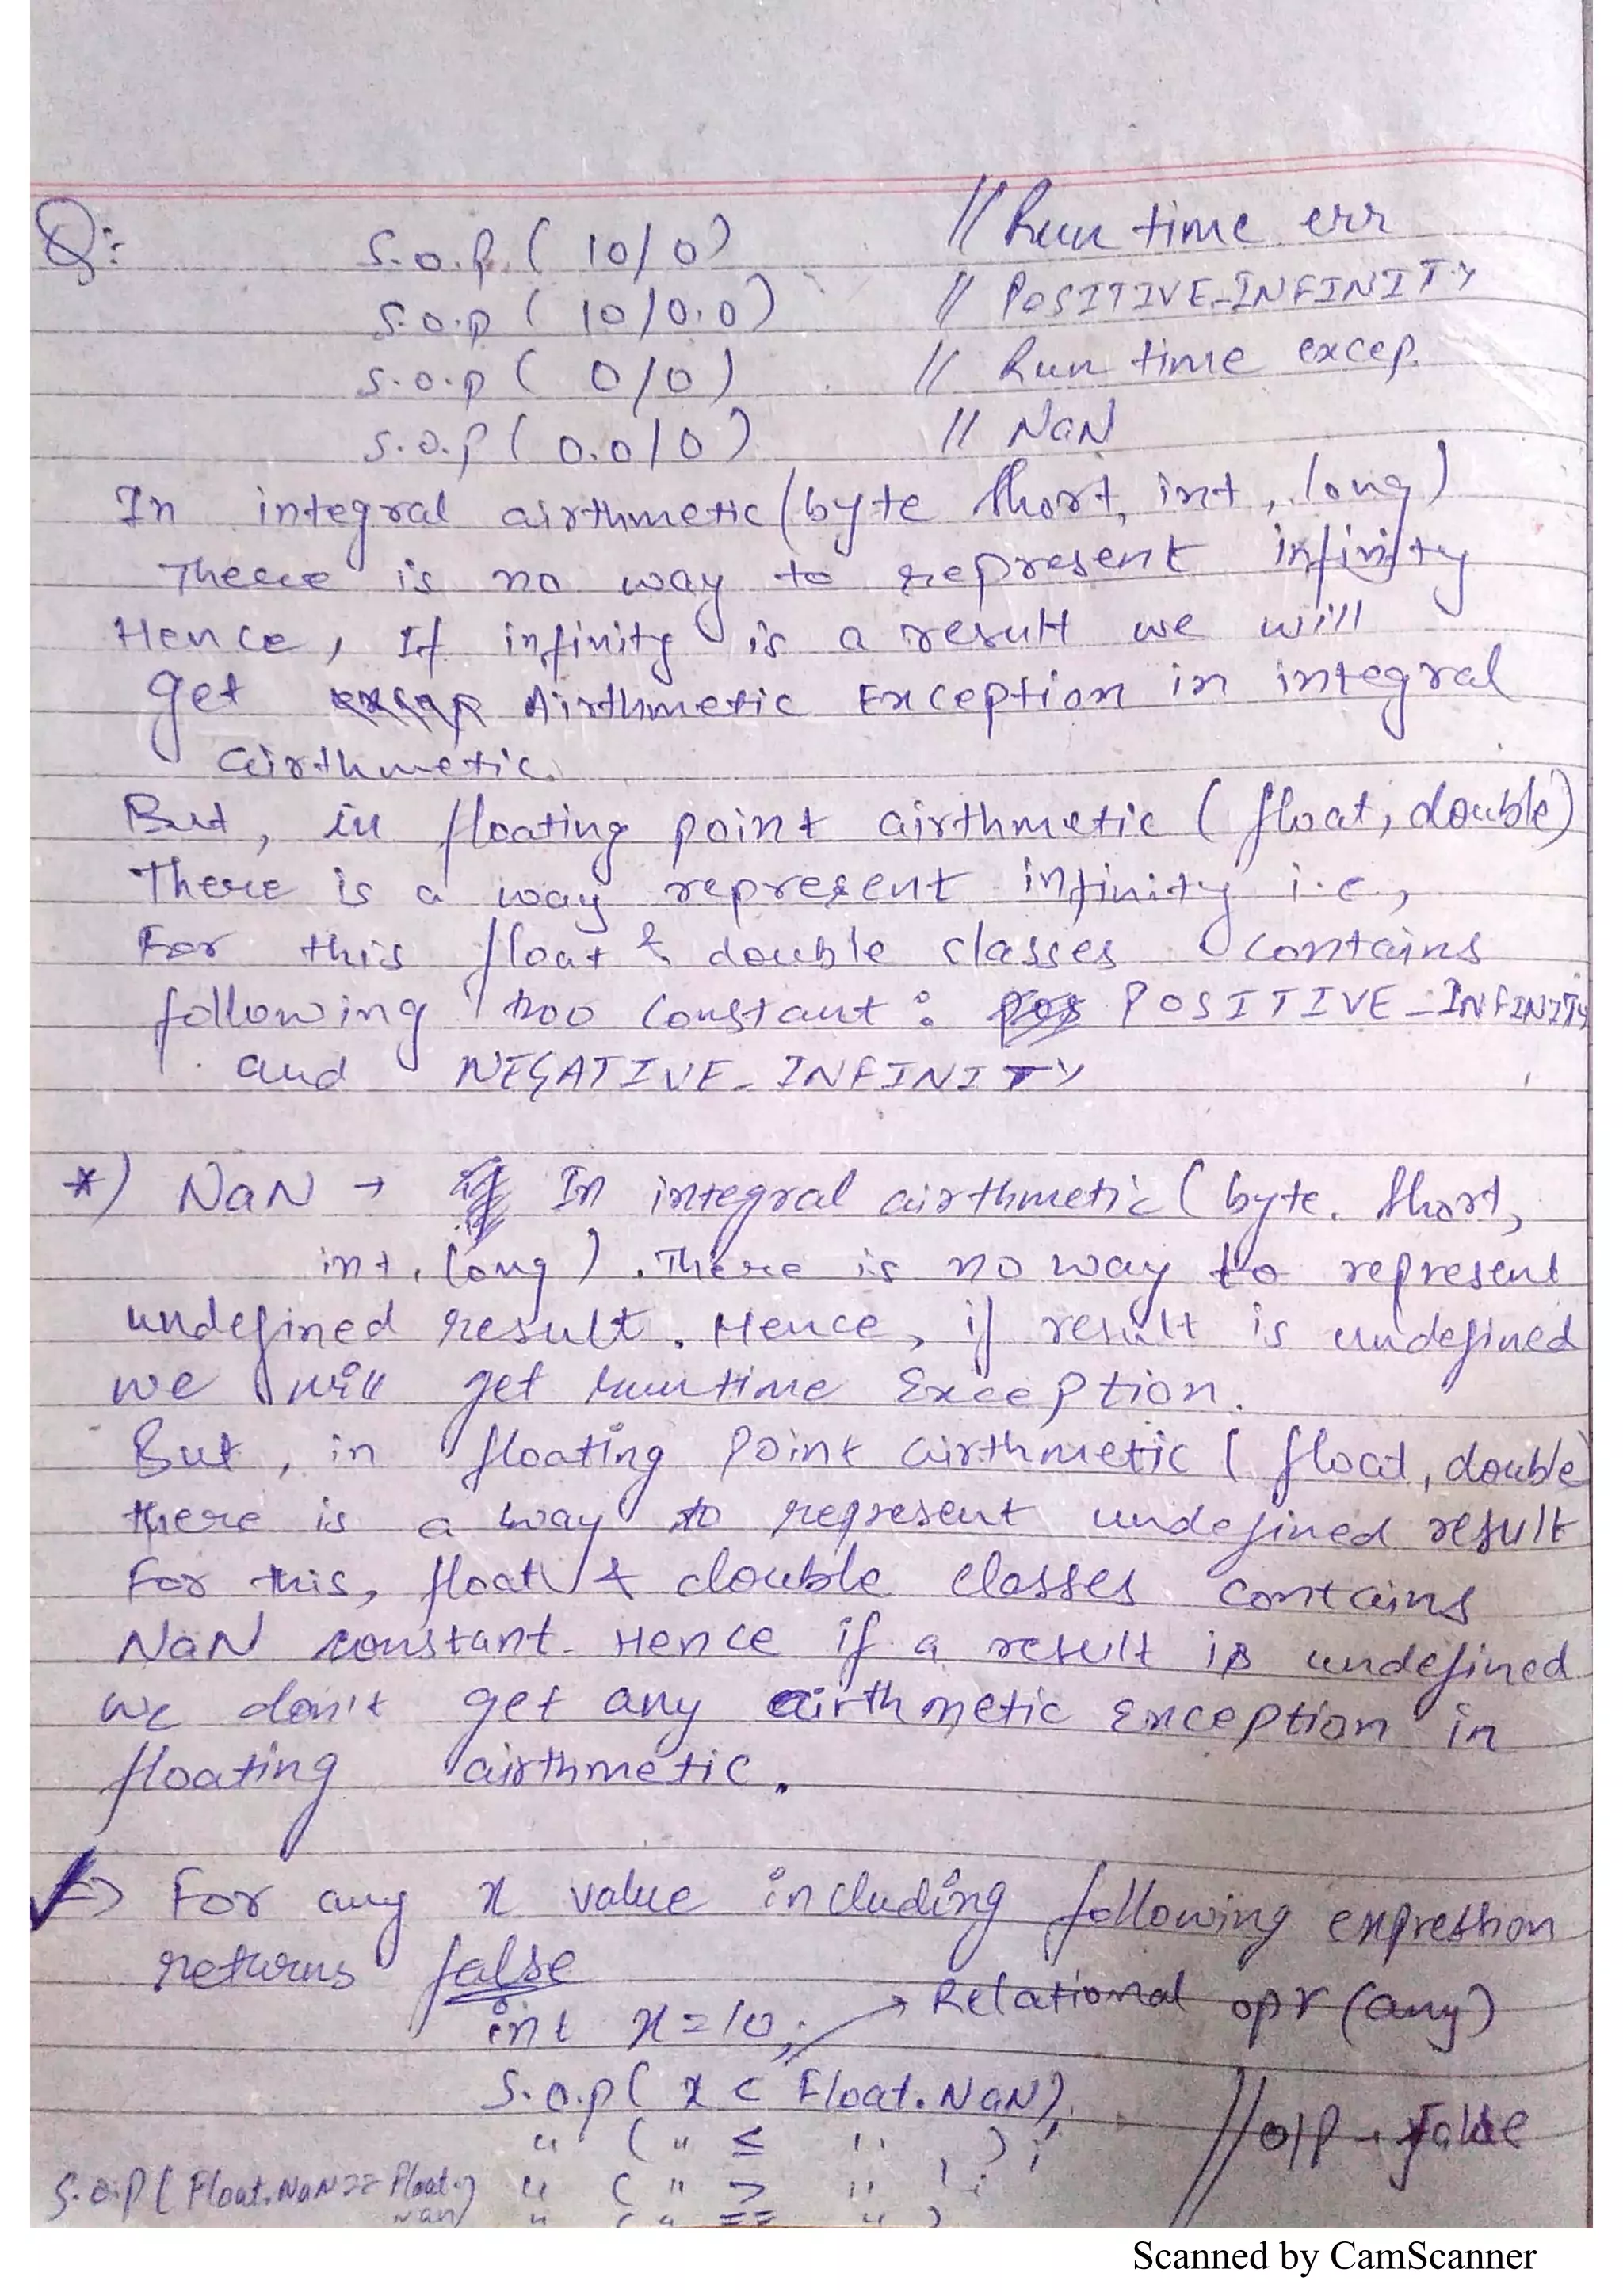 Q:
S.o.p. ( 10/0) // Run time err
S.o.p ( 10/0.0) // POSITIVE_INFINITY
S.o.p ( 0/0) // Run time excep.
S.o.p ( 0.0/0) // NaN
In integral airthmetic (byte short, int, long)
There is no way to represent infinity
Hence, If infinity is a result we will
get Airthmetic Exception in integral
airthmetic.
But, in floating point airthmetic ( float, double)
There is a way represent infinity i.e,
For this float & double classes contains
following two constant : POSITIVE_INFINITY
and NEGATIVE_INFINITY
*) NaN → In integral airthmetic ( byte. short,
int, long ) . There is no way to represent
undefined result. Hence, if result is undefined
we will get runtime Exception.
But, in floating point airthmetic ( float, double)
there is a way to represent undefined result
For this, float & double classes contains
NaN constant. Hence if a result is undefined
we don't get any airthmetic Exception in
floating airthmetic.
=> For any x value including following expression
returns false
int x=10; → Relational opr (any)
S.o.p( x < Float.NaN);
" ( " ≤ " ); // o/p → false
S.o.p ( Float.NaN == Float.NaN) " ( " > " );
" ( " == " )
Scanned by CamScanner